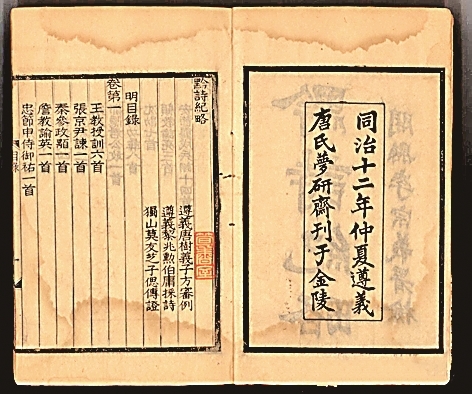 同治十二年仲夏遵義
唐氏夢研齋刊于金陵
黔詩紀略
遵義唐樹義子方審例
遵義黎兆勲伯庸採詩
獨山莫友芝子偲傳證
明目錄
卷第一
王教授訓六首
張京尹諫一首
秦參政顒一首
詹教諭英一首
忠節申侍御祐一首
目錄